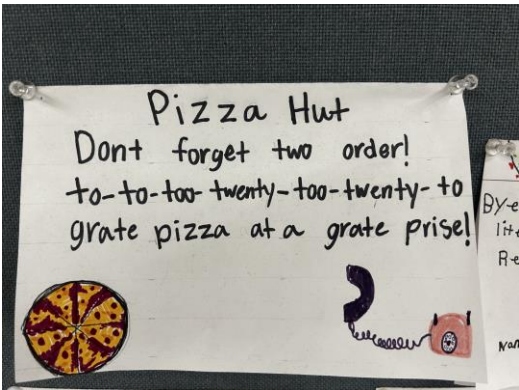 Pizza Hut
Dont forget two order!
to-to-too-twenty-too-twenty-to
grate pizza at a grate prise!